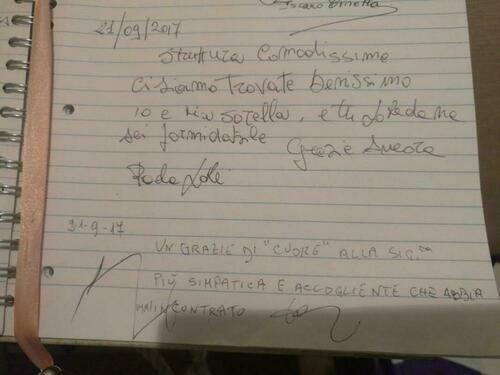 21/09/2017
Struttura Comodissima
Ci siamo trovate benissimo
io e mia sorella, e tu Loredana
sei formidabile
Grazie Ancora
Paola
21-9-17
UN GRAZIE DI "CUORE" ALLA SIG.RA
PIÙ SIMPATICA E ACCOGLIENTE CHE ABBIA
MAI INCONTRATO